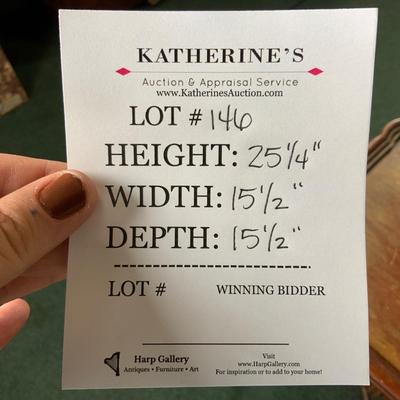 KATHERINE'S
Auction & Appraisal Service
www.KatherinesAuction.com
LOT # 146
HEIGHT: 25 1/4"
WIDTH: 15 1/2"
DEPTH: 15 1/2"
LOT # WINNING BIDDER
Harp Gallery
Antiques • Furniture • Art
Visit
www.HarpGallery.com
For inspiration or to add to your home!